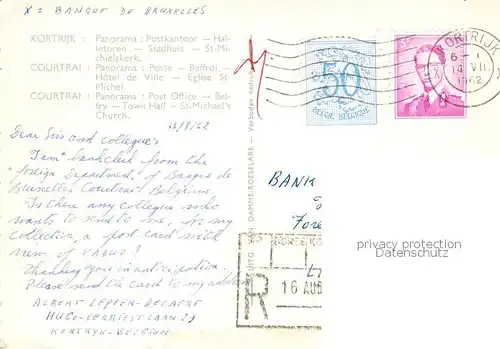 X = BANQUE DE BRUXELLES
KORTRIJK : Panorama : Postkantoor — Hal-
letoren — Stadhuis — St-Mi-
chielskerk.
COURTRAI : Panorama : Poste — Beffroi —
Hôtel de Ville — Eglise St-
Michel.
COURTRAI : Panorama : Post Office — Bel-
fry — Town Hall — St-Michael's
Church.
13/8/62
Dear Sirs and collegue's
I am bankclerk from the
"foreign Department" of Banque de
Bruxelles Courtrai Belgium.
Is there any collegue who
wants to send to me, for my
collection, a post card with
view of
Thanking you in anticipation.
Please send the card to my address
ALBERT
HUGO-VERRIESTLAAN 29
KORTRYK-BELGIUM
DAMME, ROESELARE — Verboden
50
BELGIE BELGIQUE
KORTRIJK
14 VII
1962
BANK
Fore
R
16 AUG
privacy protection
Datenschutz